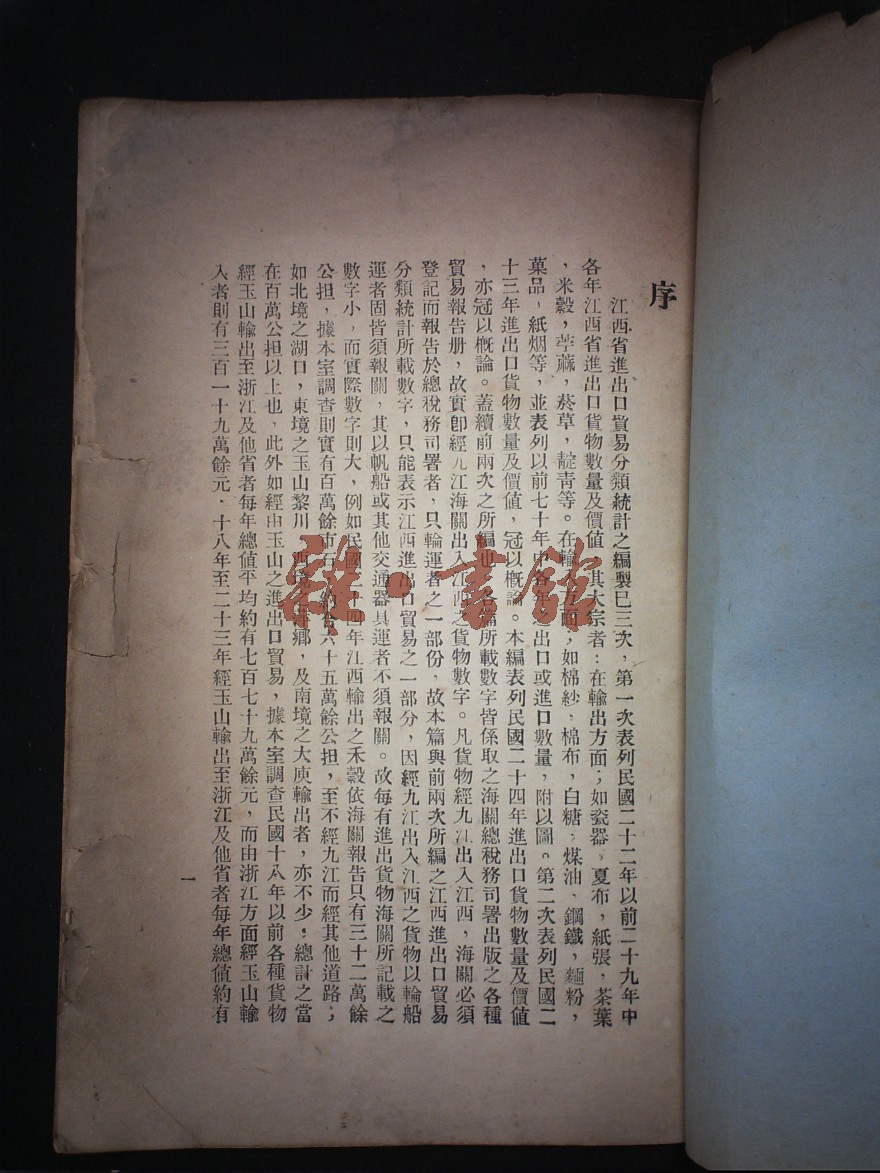 序
江西省進出口貿易分類統計之編製已三次，第一次表列民國二十二年以前二十九年中
各年江西省進出口貨物數量及價值，其大宗者：在輸出方面；如瓷器，夏布，紙張，茶葉
，米穀，苧蔴，菸草，靛青等。在輸方面；如棉紗，棉布，白糖，煤油，鋼鐵，麵粉，
菓品，紙烟等，並表列以前七十年中各年出口或進口數量，附以圖。第二次表列民國二
十三年進出口貨物數量及價值，冠以概論。本編表列民國二十四年進出口貨物數量及價值
，亦冠以概論。蓋續前兩次之所編也。各篇所載數字皆係取之海關總稅務司署出版之各種
貿易報告册，故實卽經九江海關出入江西之貨物數字。凡貨物經九江出入江西，海關必須
登記而報告於總稅務司署者，只輪運者之一部份，故本篇與前兩次所編之江西進出口貿易
分類統計所載數字，只能表示江西進出口貿易之一部分，因經九江出入江西之貨物以輪船
運者固皆須報關，其以帆船或其他交通器具運者不須報關。故每有進出貨物海關所記載之
數字小，而實際數字則大，例如民國二十四年江西輸出之禾穀依海關報告只有三十二萬餘
公担，據本室調查則實有百萬餘市石，約合六十五萬餘公担，至不經九江而經其他道路；
如北境之湖口，東境之玉山黎川，西境之萍鄉，及南境之大庾輸出者，亦不少，總計之當
在百萬公担以上也，此外如經由玉山之進出口貿易，據本室調查民國十八年以前各種貨物
經玉山輸出至浙江及他省者每年總值平均約有七百七十九萬餘元，而由浙江方面經玉山輸
入者則有三百一十九萬餘元．十八年至二十三年經玉山輸出至浙江及他省者每年總值約有
一
雜·書館